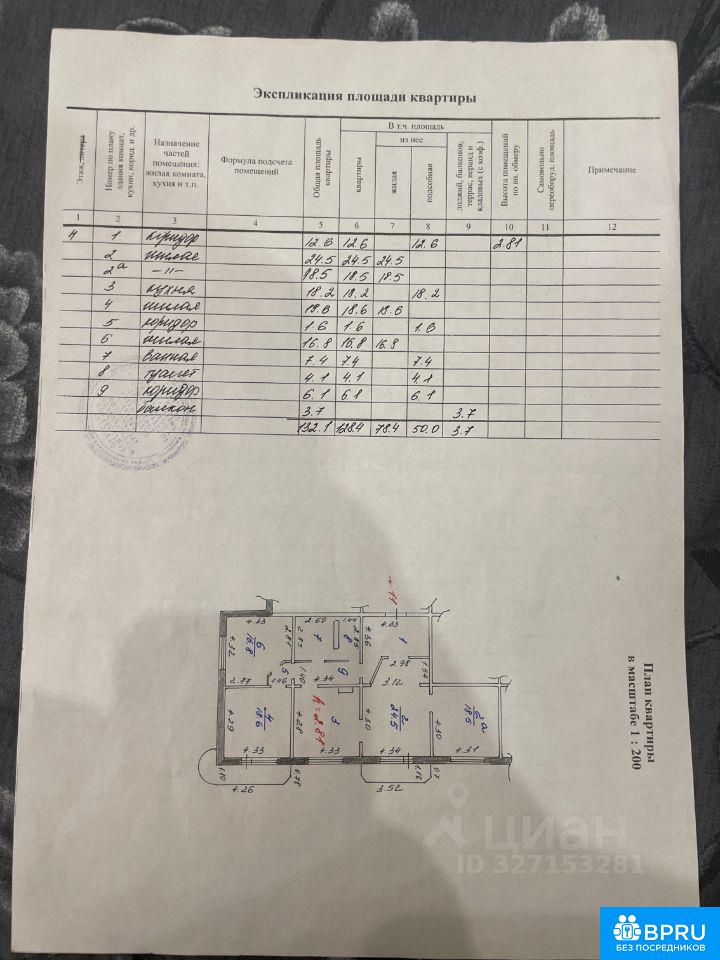 Экспликация площади квартиры
Этаж, литера
Номер по плану здания комнат, кухни, корид. и др.
Назначение частей помещения: жилая комната, кухня и т.п.
Формула подсчета помещений
Общая площадь квартиры
В т.ч. площадь
квартиры
из нее
жилая
подсобная
лоджий, балконов, террас, веранд и кладовых (с коэф.)
Высота помещений по вн. обмеру
Самовольно переоборуд. площадь
Примечание
1 2 3 4 5 6 7 8 9 10 11 12
4 1 коридор 12.6 12.6 12.6 2.81
2 жилая 24.5 24.5 24.5
2а —"— 18.5 18.5
3 кухня 18.2 18.2 18.2
4 жилая 18.6 18.6 18.6
5 коридор 1.6 1.6 1.6
6 жилая 16.8 16.8 16.8
7 ванная 7.4 7.4 7.4
8 туалет 4.1 4.1 4.1
9 коридор 6.1 6.1 6.1
балкон 3.7 3.7
132.1 128.4 78.4 50.0 3.7
План квартиры
в масштабе 1 : 200
4.33 2.60 1.44 4.03
4.32 6 16.8 2.81 2.85 7 8 2.85 4.36 1
5 9 2.98 1.54
2.77 1.46 1.40 4.34 3.12
4.29 4 18.6 4.28 3 h=2.81 4.30 2 24.5 4.30 2а 18.5
4.33 4.33 4.34 4.31
1.10 4.26 0.78 3.52 1.16 0.7
циан
ID 327153281
BPRU
БЕЗ ПОСРЕДНИКОВ